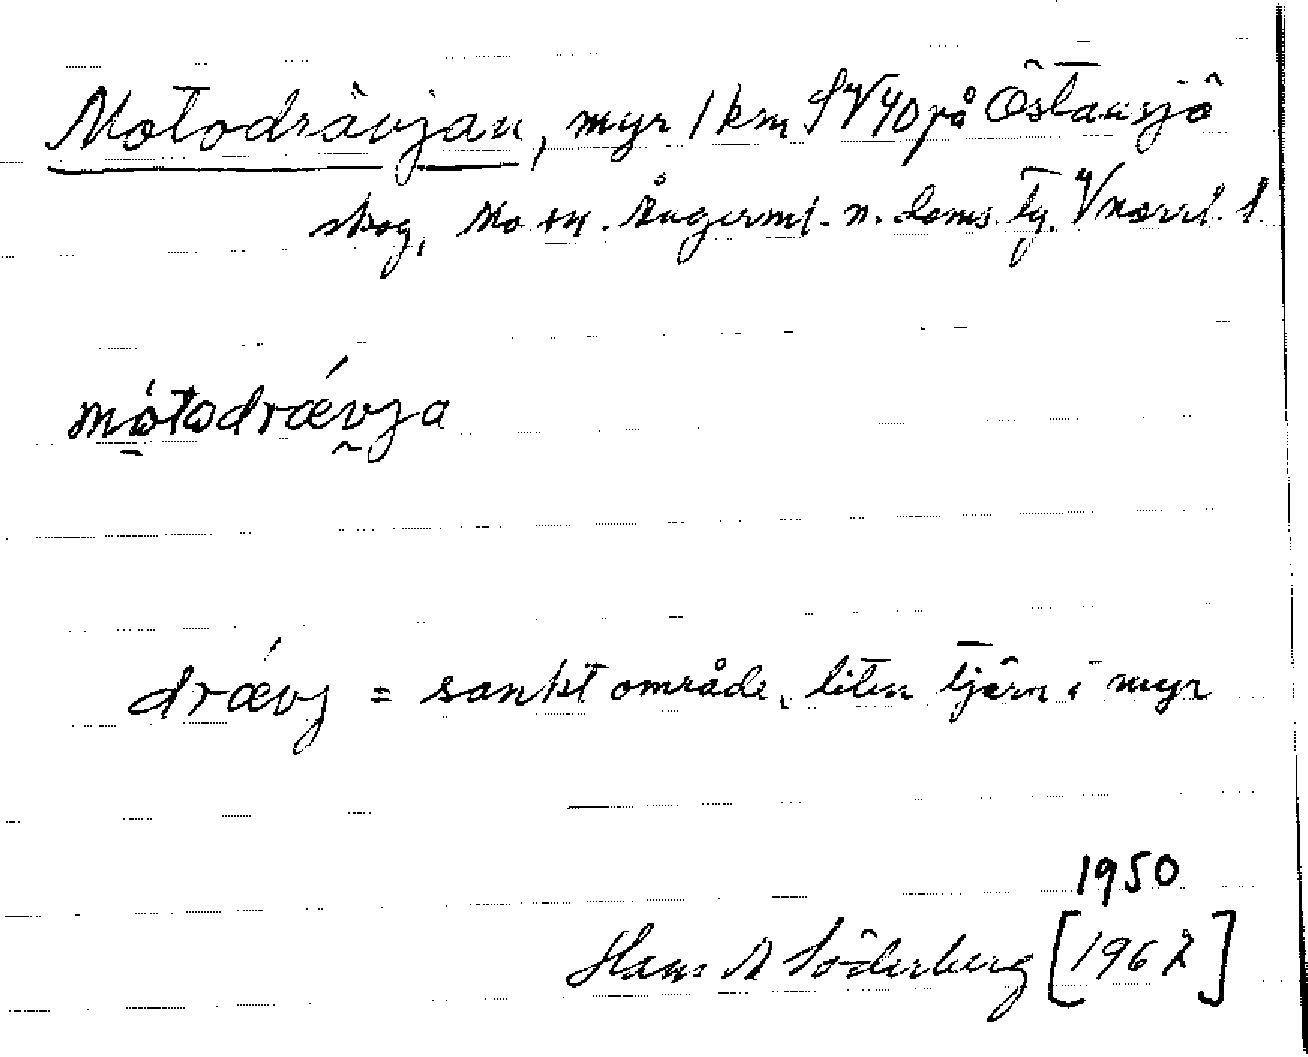 Motodrävjan, myr 1 km SV om på Östansjö
skog, Mo sn. Ångerml. n. doms. tg. Vnorrl. l.
mótodrǽvja
drǽvj = sankt område, liten tjärn i myr
1950
Hans A Söderberg [1967]